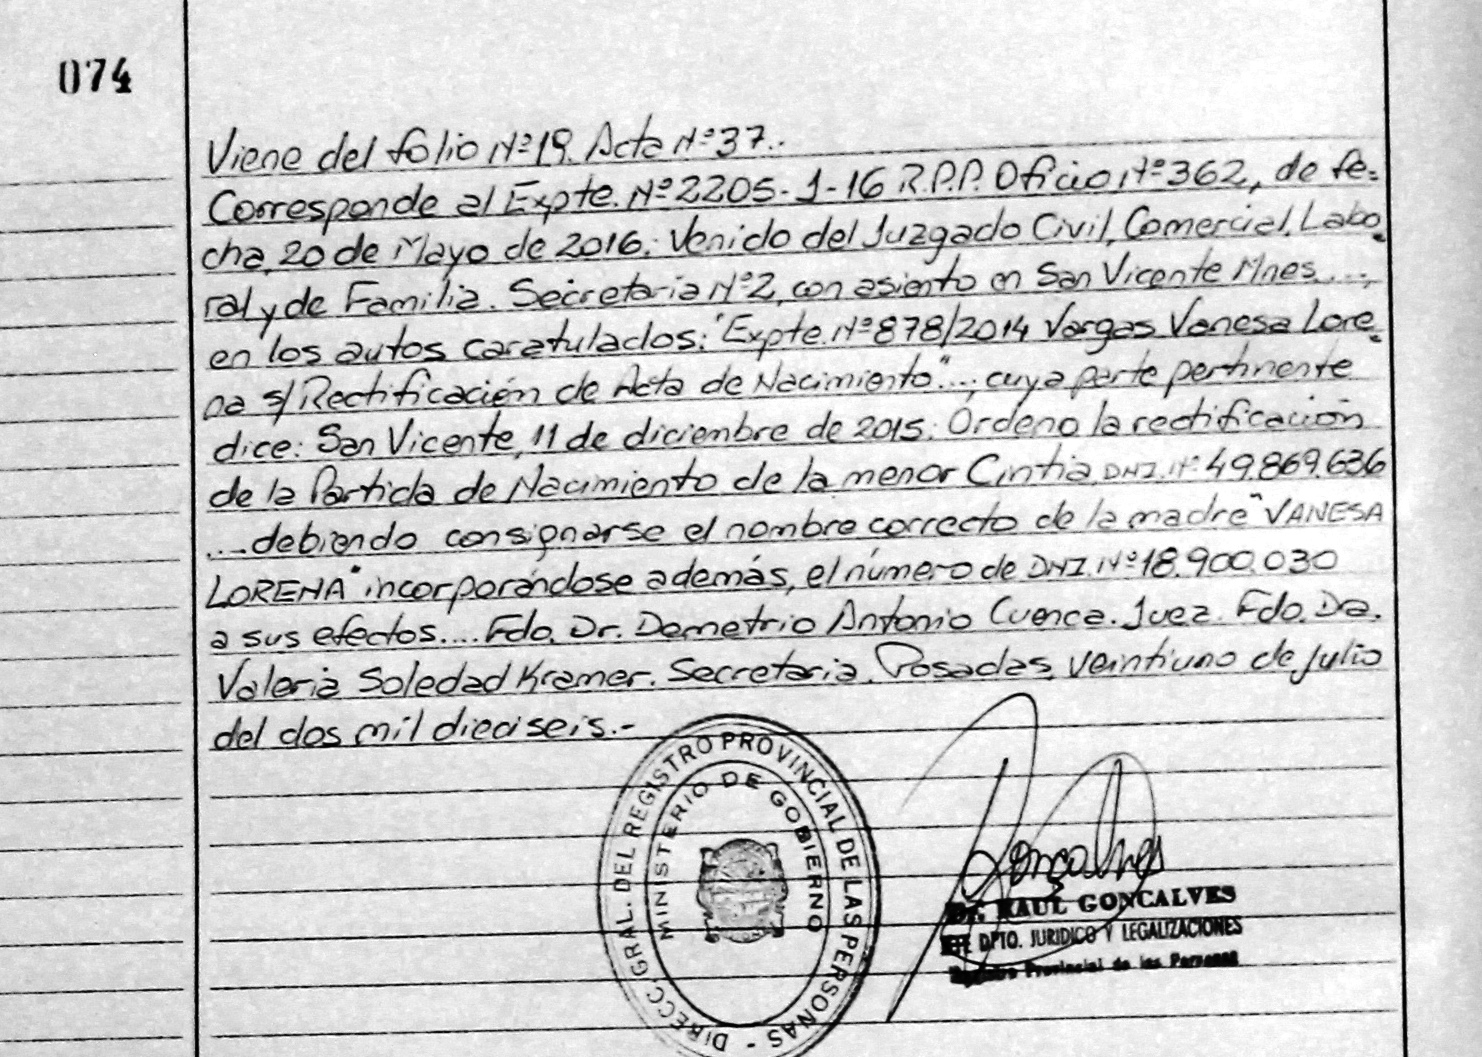 074
Viene del folio Nº19. Acta Nº37..
Corresponde al Expte. Nº2205-1-16 R.P.P. Oficio Nº362, de fe=
cha, 20 de Mayo de 2016. Venido del Juzgado Civil, Comercial, Labo=
ral y de Familia. Secretaria Nº2, con asiento en San Vicente Mnes....,
en los autos caratulados: "Expte. Nº878/2014 Vargas Vanesa Lore=
na s/ Rectificación de Acta de Nacimiento"..., cuya parte pertinente
dice: San Vicente, 11 de diciembre de 2015. Ordeno la rectificación
de la Partida de Nacimiento de la menor Cintia, DNI. Nº 49.869.636
....debiendo consignarse el nombre correcto de la madre "VANESA
LORENA" incorporándose además, el número de DNI. Nº18.900.030
a sus efectos.... Fdo. Dr. Demetrio Antonio Cuenca. Juez. Fdo. Da.
Valeria Soledad Kramer. Secretaria. Posadas, veintiuno de Julio
del dos mil dieciseis.-
DIRECC. GRAL. DEL REGISTRO PROVINCIAL DE LAS PERSONAS -
MINISTERIO DE GOBIERNO
Goncalves
Dr. RAUL GONCALVES
JEFE DPTO. JURIDICO Y LEGALIZACIONES
Registro Provincial de las Personas